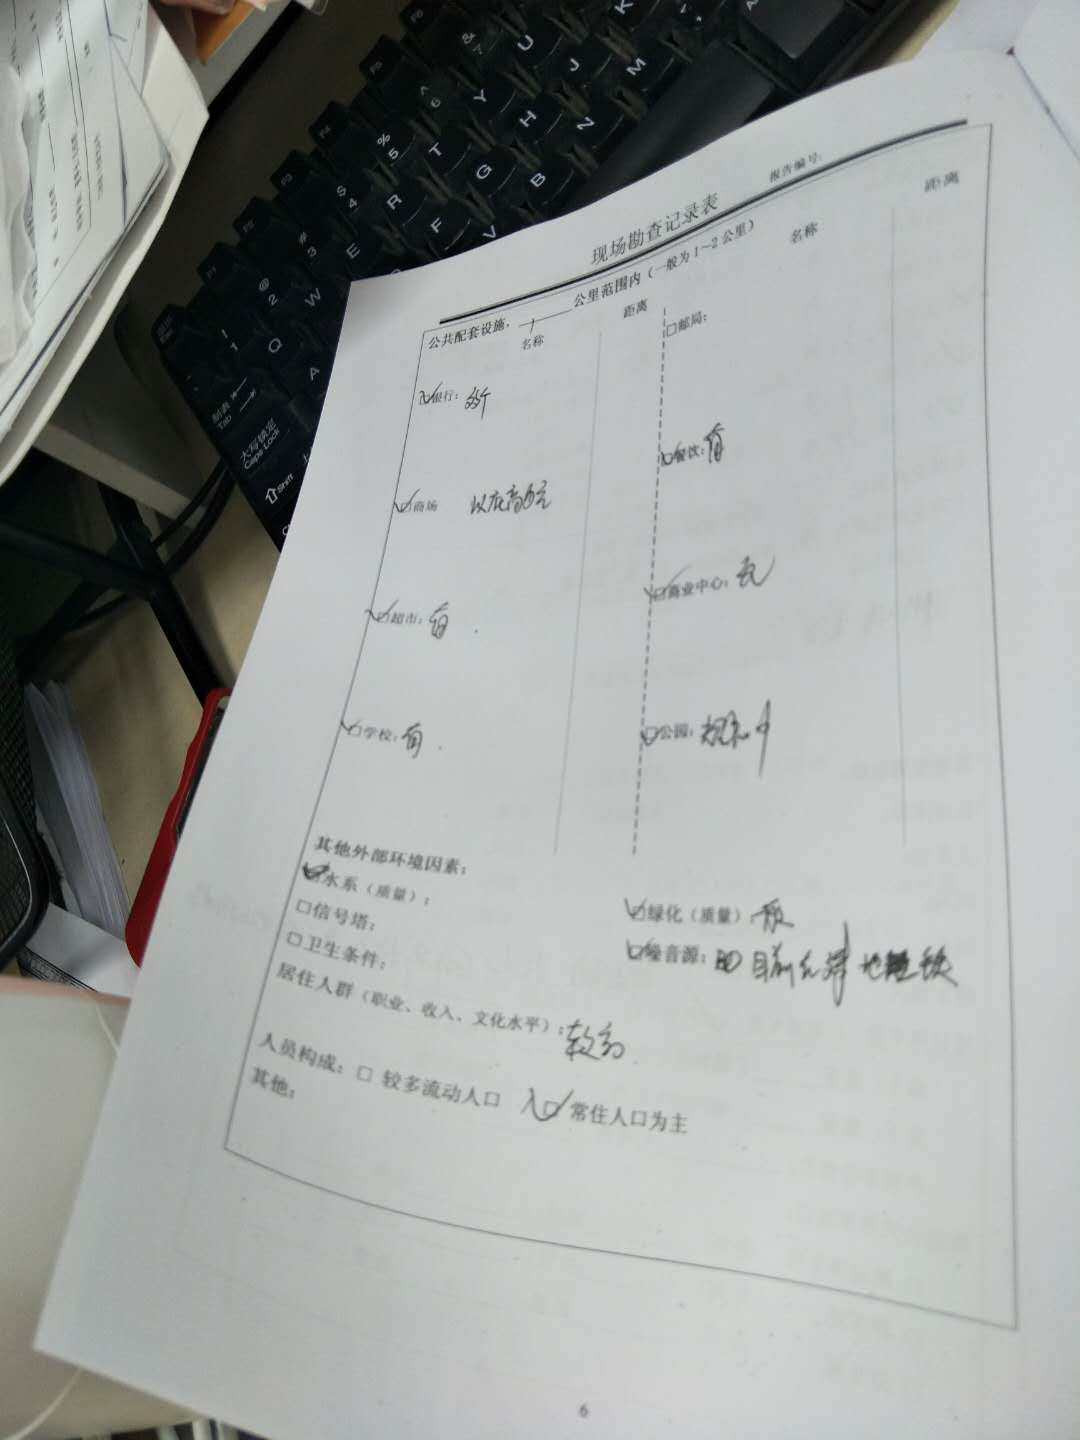 报告编号:
现场勘查记录表
公共配套设施, 1 公里范围内（一般为1~2公里）
名称 距离 名称 距离
□邮局:
☑银行: 
□餐饮: 有
☑商场
☑超市: 有
☑商业中心: 无
☑学校: 有
☑公园:
其他外部环境因素:
☑水系（质量）:
☑绿化（质量）: 一般
□信号塔:
☑噪音源: 目前在建地铁
□卫生条件:
居住人群（职业、收入、文化水平）: 较高
人员构成: □ 较多流动人口 ☑ 常住人口为主
其他:
6
F1
F2
F3
F4
F5
F6
1
@ 2
# 3
$ 4
% 5
^ 6
& 7
Q
W
E
R
T
Y
U
A
F
G
H
J
K
V
B
M
制表 Tab
大写锁定 Caps Lock
Shift